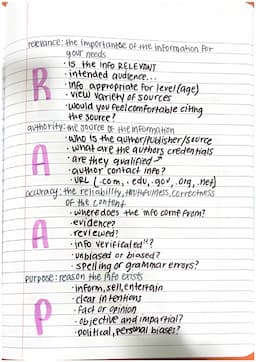 relevance: the importantce of the information for
your needs
R
• is the info RELEVANT
• intended audience...
• info appropriate for level (age)
• view variety of sources
• would you feel comfortable citing
the source?
authority: the source of the information
A
• who is the author/publisher/source
• what are the authors credentials
• are they qualified
• author contact info?
• URL (.com, .edu, .gov, .org, .net)
accuracy: the reliability, truthfulness, correctness
of the content
A
• where does the info come from?
• evidence?
• reviewed?
• info verified?
• unbiased or biased?
• spelling or grammar errors?
purpose: reason the info exists
P
• inform, sell, entertain
• clear intentions
• fact or opinion
• objective and impartial?
• political, personal biases?